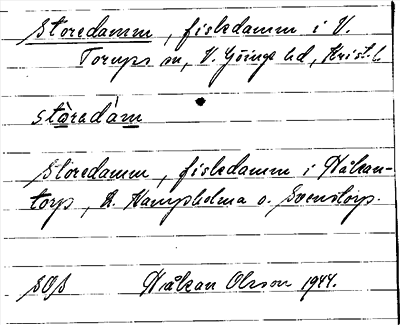 Storedamm, fiskedamm i V.
Torups sn, V. Göinge hd, Krist. l.
stàradàm
Storedamm, fiskedamm i Håkan-
torp, R. Hampholma o. Svenstorp.
SOS Håkan Olsson 1944.